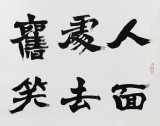 人面
處去
舊笑